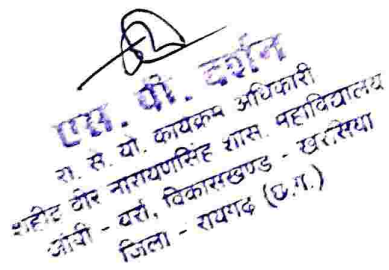 एस. पी. दर्शन
रा. से. यो. कार्यक्रम अधिकारी
शहीद वीर नारायणसिंह शास. महाविद्यालय
जोबी - बर्रा, विकासखण्ड - खरसिया
जिला - रायगढ़ (छ.ग.)